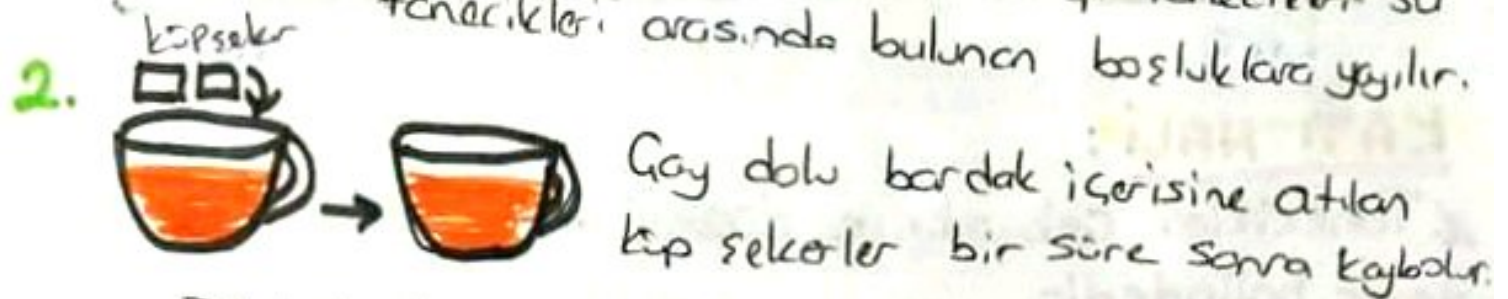 tanecikleri arasında bulunan boşluklara yayılır.
küpşeker
2.
Çay dolu bardak içerisine atılan
küp şekerler bir süre sonra kaybolur.